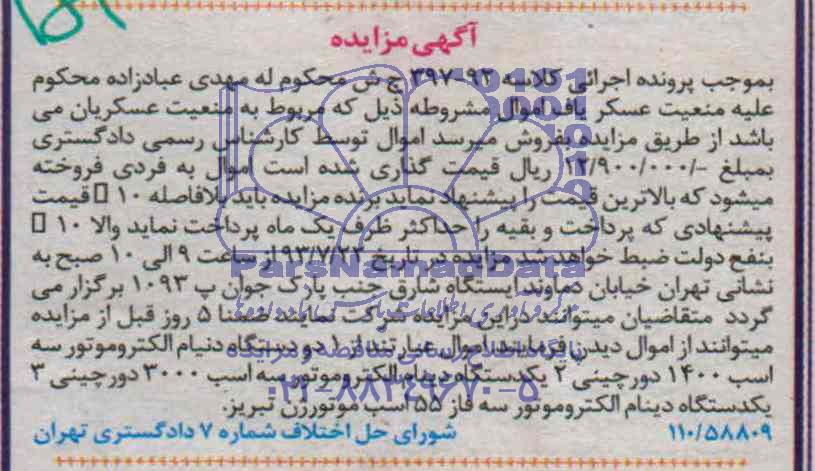 آگهی مزایده
بموجب پرونده اجرائی کلاسه ۹۲-۳۹۷ ج ش محکوم له مهدی عبادزاده محکوم
علیه منعیت عسکر یاف اموال مشروطه ذیل که مربوط به منعیت عسکریان می
باشد از طریق مزایده بفروش میرسد اموال توسط کارشناس رسمی دادگستری
بمبلغ -/۱۲/۹۰۰/۰۰۰ ریال قیمت گذاری شده است اموال به فردی فروخته
میشود که بالاترین قیمت را پیشنهاد نماید برنده مزایده باید بلافاصله ۱۰ قیمت
پیشنهادی که پرداخت و بقیه را حداکثر ظرف یک ماه پرداخت نماید والا ۱۰
بنفع دولت ضبط خواهد شد مزایده در تاریخ ۹۳/۷/۲۲ از ساعت ۹ الی ۱۰ صبح به
نشانی تهران خیابان دماوند ایستگاه شارق جنب پارک جوان پ ۱۰۹۳ برگزار می
گردد متقاضیان میتوانند در این مزایده شرکت نمایند ضمنا ۵ روز قبل از مزایده
میتوانند از اموال دیدن فرمایند اموال عبارتند از ۱ دو دستگاه دنیام الکتروموتور سه
اسب ۱۴۰۰ دور چینی ۲ یکدستگاه دینام الکتروموتور سه اسب ۳۰۰۰ دور چینی ۳
یکدستگاه دینام الکتروموتور سه فاز ۵۵ اسب موتورژن تبریز.
۱۱۰/۵۸۸۰۹ شورای حل اختلاف شماره ۷ دادگستری تهران
ParsNamadData
پایگاه اطلاع رسانی مناقصه و مزایده
۰۲۱-۸۸۳۴۹۶۷۰-۵